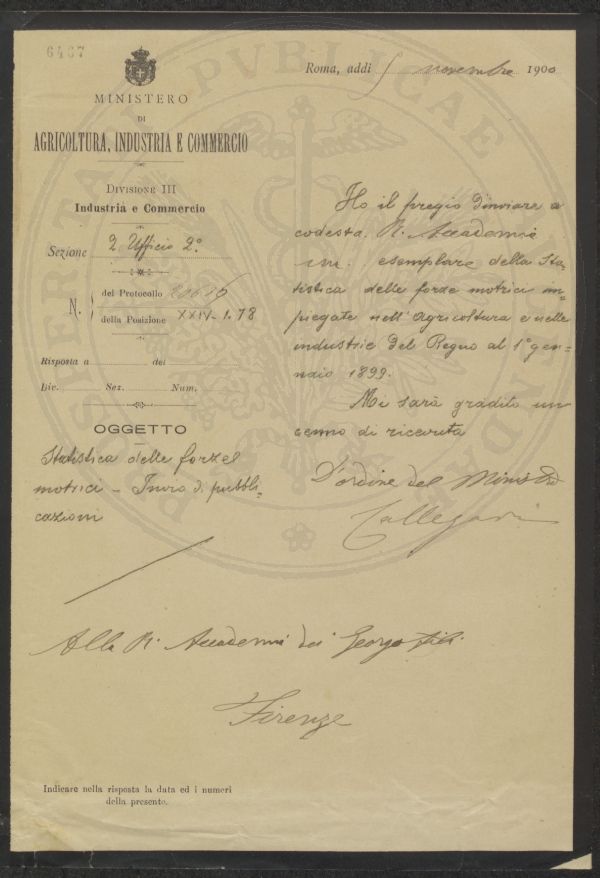 6467
Roma, addì 5 novembre 1900
MINISTERO
DI
AGRICOLTURA, INDUSTRIA E COMMERCIO
DIVISIONE III
Industria e Commercio
Sezione 2 Ufficio 2°
N. del Protocollo
della Posizione XXIV-1.78
Risposta a del
Div. Sez. Num.
OGGETTO
Statistica delle forze
motrici - Invio di pubbli-
cazioni
Ho il pregio d'inviare a
codesta R. Accademia
un esemplare della Sta-
tistica delle forze motrici im-
piegate nell'Agricoltura e nelle
industrie del Regno al 1° gen-
naio 1899.
Mi sarà gradito un
cenno di ricevuta
D'ordine del Ministro
Callegari
Alla R. Accademia dei Georgofili
Firenze
Indicare nella risposta la data ed i numeri
della presente.